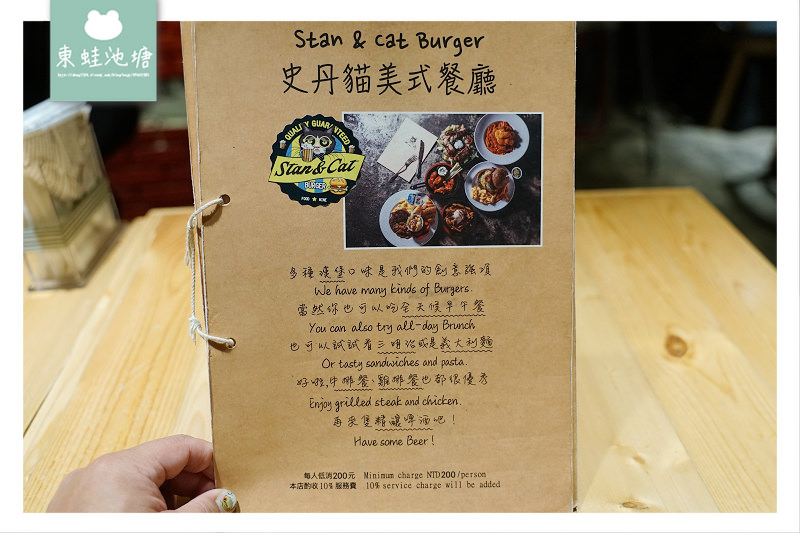 東蛙池塘
Stan & Cat Burger
史丹貓美式餐廳
QUALITY GUARANTEED
Stan & Cat
BURGER
FOOD ★ WINE
多種漢堡口味是我們的創意強項
We have many kinds of Burgers.
當然你也可以吃全天候早午餐
You can also try all-day Brunch
也可以試試看三明治或是義大利麵
Or tasty sandwiches and pasta.
好啦,牛排餐、雞排餐也都很優秀
Enjoy grilled steak and chicken.
再來隻精釀啤酒吧！
Have some Beer!
每人低消200元 Minimum charge NTD200/person
本店酌收10%服務費 10% service charge will be added